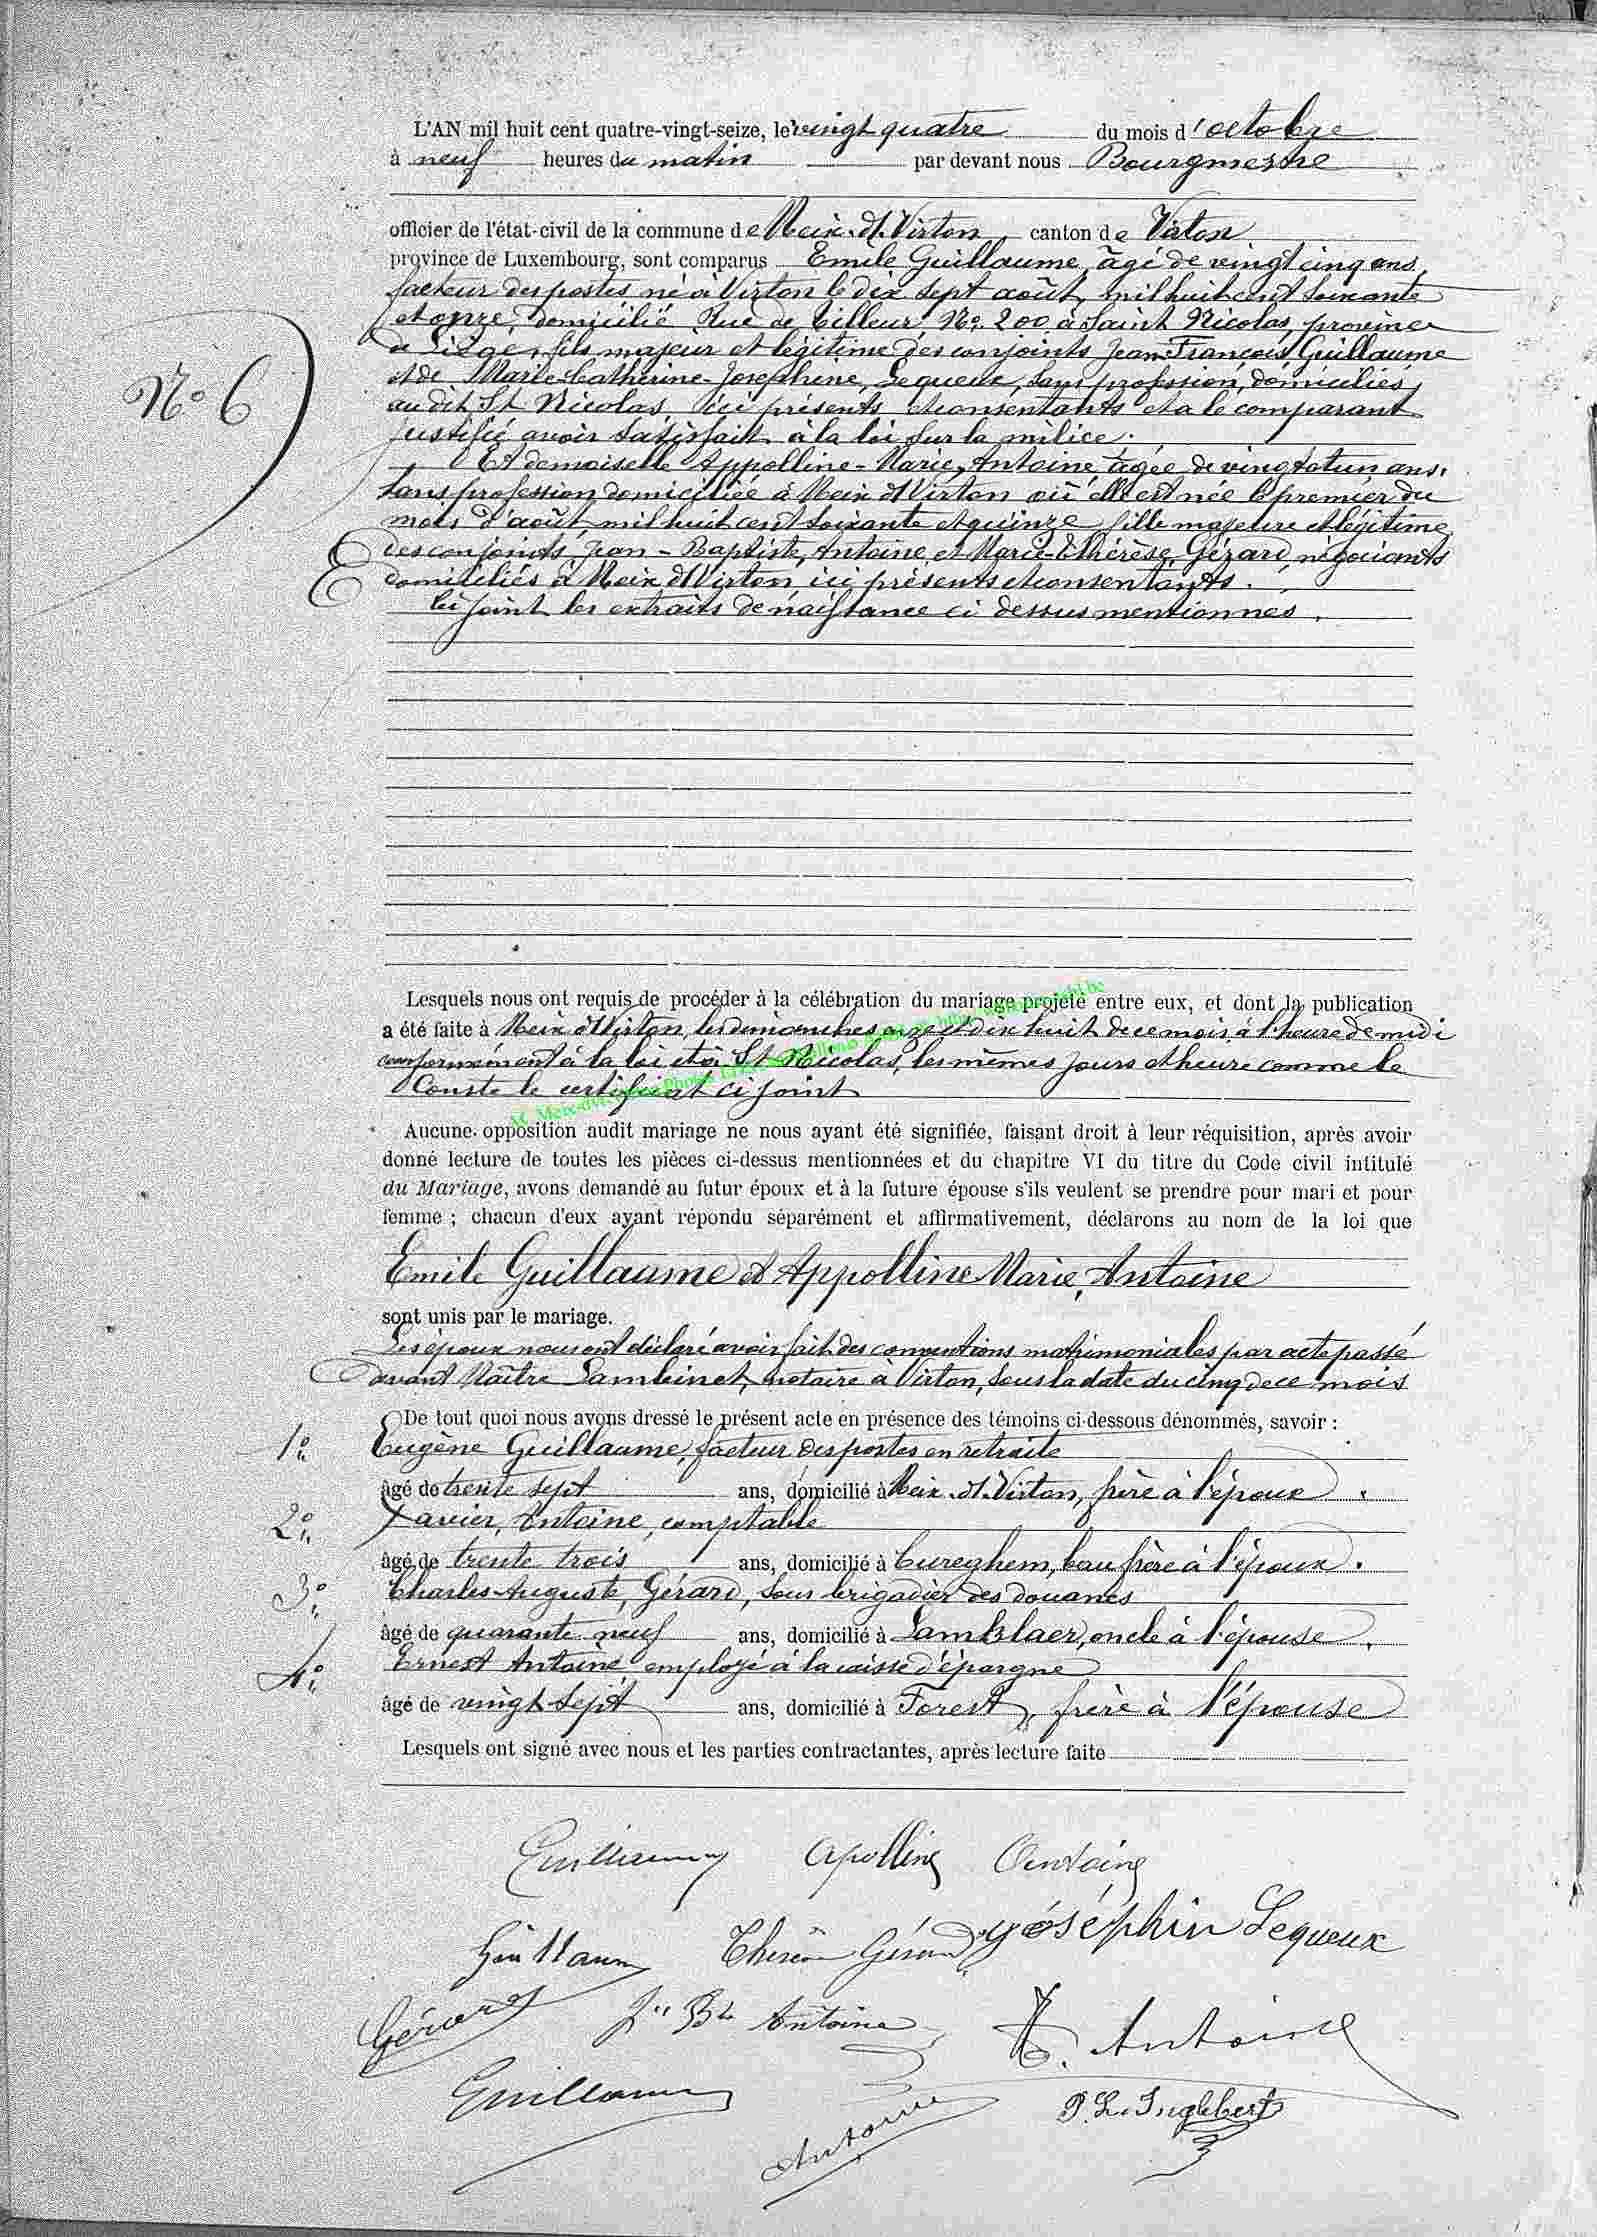 L'AN mil huit cent quatre-vingt-seize, le vingt quatre du mois d'octobre
à neuf heures du matin par devant nous Bourgmestre
officier de l'état-civil de la commune de Meix-d/-Virton canton de Virton
province de Luxembourg, sont comparus Emile Guillaume, âgé de vingt cinq ans,
facteur des postes né à Virton le dix sept août, mil huit cent soixante
et onze, domicilié Rue de Tilleur, No. 200 à Saint Nicolas, province
de Liège, fils majeur et légitime des conjoints Jean-François Guillaume
et de Marie-Catherine-Josephine, Lequeux, sans profession, domiciliés,
au dit St Nicolas, ici présents et consentants et a le comparant
justifié avoir satisfait à la loi sur la milice.
No 6
Et demoiselle Appolline-Marie, Antoine, âgée de vingt et un ans,
sans profession domiciliée à Meix d/Virton où elle est née le premier du
mois d'août, mil huit cent soixante et quinze fille majeure et légitime
des conjoints, Jean-Baptiste, Antoine et Marie-Thérèse, Gérard, négociants
domiciliés à Meix d/Virton, ici présents et consentants.
Ci joint les extraits de naissance ci dessus mentionnés.
Lesquels nous ont requis de procéder à la célébration du mariage projeté entre eux, et dont la publication
a été faite à Meix d/Virton, les dimanches onze et dix huit de ce mois, à l'heure de midi
conformément à la loi et à St Nicolas, les mêmes jours et heure comme le
Conste le certificat ci joint
Aucune opposition audit mariage ne nous ayant été signifiée, faisant droit à leur réquisition, après avoir
donné lecture de toutes les pièces ci-dessus mentionnées et du chapitre VI du titre du Code civil intitulé
du Mariage, avons demandé au futur époux et à la future épouse s'ils veulent se prendre pour mari et pour
femme ; chacun d'eux ayant répondu séparément et affirmativement, déclarons au nom de la loi que
Emile Guillaume et Appolline Marie, Antoine
sont unis par le mariage.
Les époux nous ont déclaré avoir fait des conventions matrimoniales par acte passé
devant Maître Lambinet, notaire à Virton, sous la date du cinq de ce mois
De tout quoi nous avons dressé le présent acte en présence des témoins ci-dessous dénommés, savoir :
1° Eugène Guillaume, facteur des postes en retraite
âgé de trente sept ans, domicilié à Meix-d/-Virton, frère à l'époux.
2° Xavier, Antoine, comptable
âgé de trente trois ans, domicilié à Cureghem, beau frère à l'époux.
3° Charles-Auguste, Gérard, sous brigadier des douanes
âgé de quarante neuf ans, domicilié à oncle à l'épouse.
4° Ernest Antoine employé à la caisse d'épargne
âgé de vingt sept ans, domicilié à Forest, frère à l'épouse
Lesquels ont signé avec nous et les parties contractantes, après lecture faite
Guillaume Apolline Antoine
Guillaume Thérèse Gérard Joséphin Lequeux
Gérard Jn Bte Antoine Antoine
Guillaume Antoine P. L. Inglebert